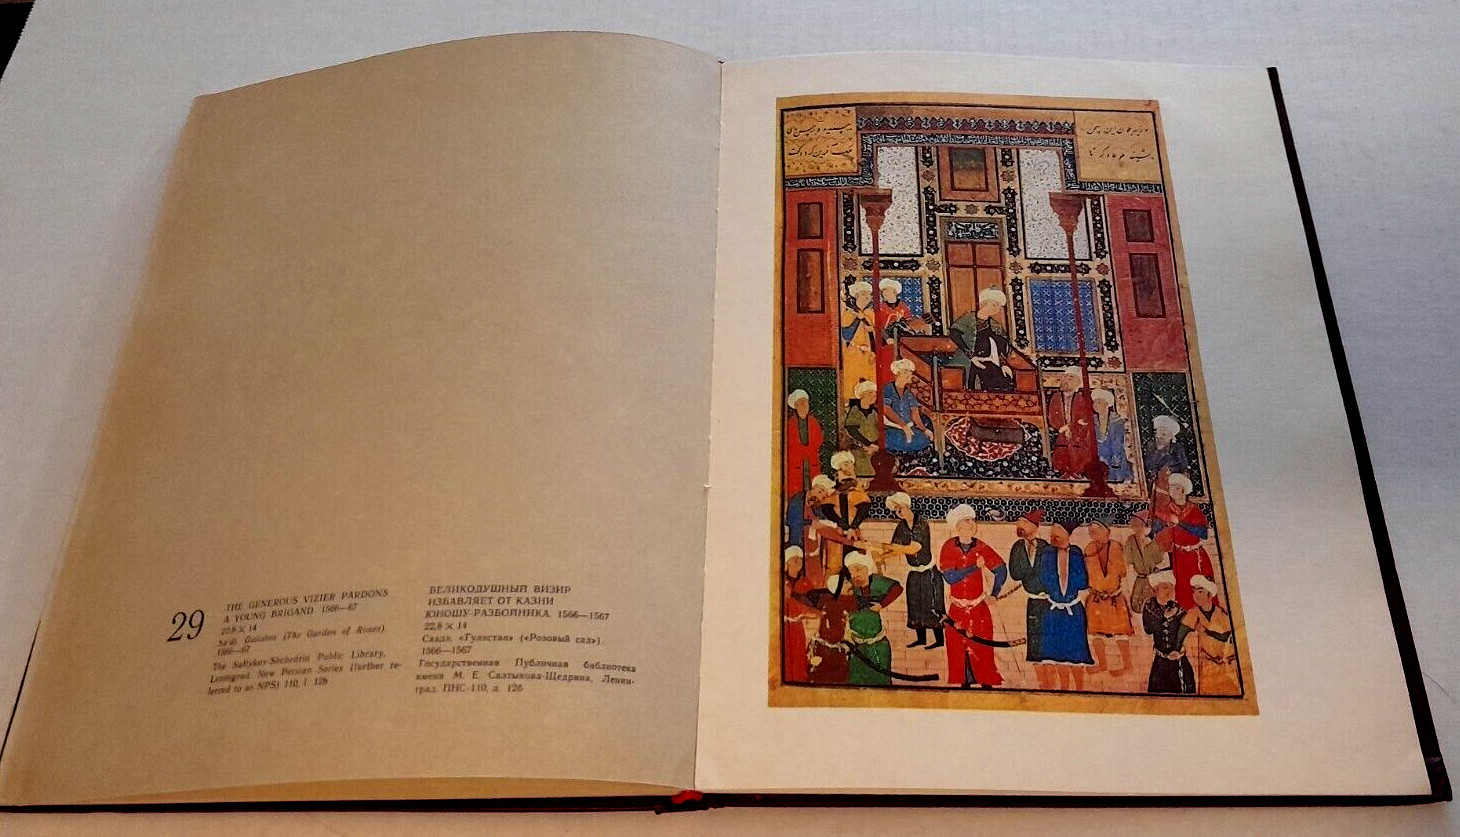 29
THE GENEROUS VIZIER PARDONS
A YOUNG BRIGAND. 1566—67
22,8 × 14
Sa'di. Gulistan (The Garden of Roses).
1566—67
The Saltykov-Shchedrin Public Library,
Leningrad. New Persian Series (further re-
ferred to as NPS) 110, f. 12b
ВЕЛИКОДУШНЫЙ ВИЗИР
ИЗБАВЛЯЕТ ОТ КАЗНИ
ЮНОШУ-РАЗБОЙНИКА. 1566—1567
22,8 × 14
Саади. «Гулистан» («Розовый сад»).
1566—1567
Государственная Публичная библиотека
имени М. Е. Салтыкова-Щедрина, Ленин-
град. ПНС-110, л. 12б